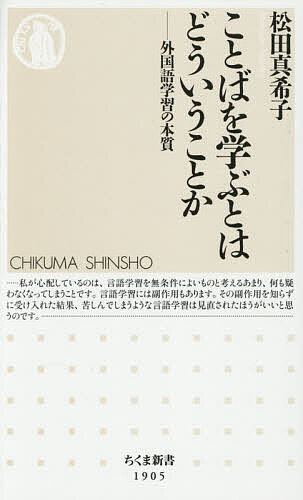 松田真希子
ことばを学ぶとは
どういうことか
──外国語学習の本質
CHIKUMA SHINSHO
……私が心配しているのは、言語学習を無条件によいものと考えるあまり、何も疑
わなくなってしまうことです。言語学習には副作用もあります。その副作用を知らず
に受け入れた結果、苦しんでしまうような言語学習は見直されたほうがいいと思
うのです。……
ちくま新書
1905